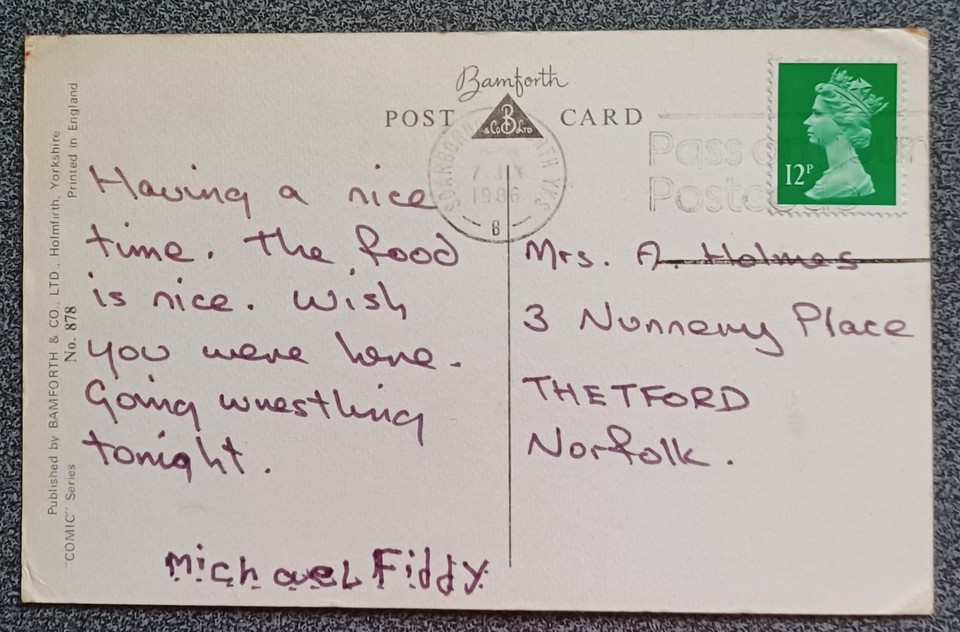 Bamforth
POST CARD
& Co B LTD
SCARBOROUGH NORTH YKS
7 JLY
1986
B
Pass on your
Postcode
12P
Having a nice
time. The food
is nice. Wish
you were here.
Going wrestling
tonight.
Michael Fiddy
Mrs. A. Holmes
3 Nunnery Place
THETFORD
Norfolk.
Published by BAMFORTH & CO., LTD., Holmfirth, Yorkshire
"COMIC" Series No. 878 Printed in England